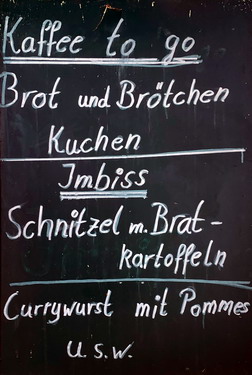 Kaffee to go
Brot und Brötchen
Kuchen
Imbiss
Schnitzel m. Brat-
kartoffeln
Currywurst mit Pommes
u.s.w.